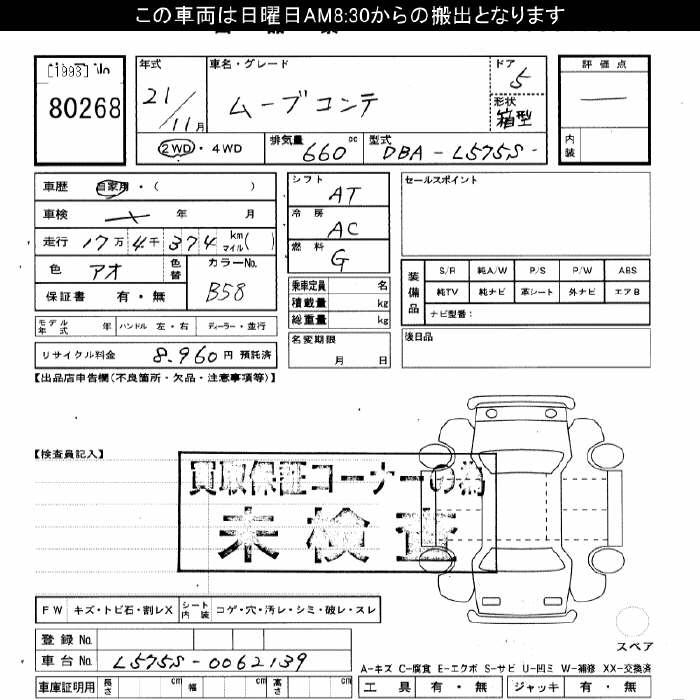 この車両は日曜日AM8:30からの搬出となります
[1993] No
80268
年式 車名・グレード ドア 評価点
21/11月 ムーブコンテ 5 —
形状 箱型
2WD・4WD 排気量 660 cc 型式 DBA-L575S- 内装
車歴 自家用・( )
車検 年 月
走行 17万 4千 374 km マイル( )
色 アオ 色替 カラーNo. B58
保証書 有・無
モデル年式 年 ハンドル 左・右 ディーラー・並行
リサイクル料金 8,960 円 預託済
シフト AT
冷房 AC
燃料 G
乗車定員 名
積載量 kg
総重量 kg
名変期限
月 日
セールスポイント
装備品 S/R 純A/W P/S P/W ABS
純TV 純ナビ 革シート 外ナビ エアB
ナビ型番:
後日品
【出品店申告欄(不良箇所・欠品・注意事項等)】
【検査員記入】
買取保証コーナーの為
未検査
FW キズ・トビ石・割レX シート内装 コゲ・穴・汚レ・シミ・破レ・スレ
登録No.
車台No. L575S-0062139
車庫証明用 長さ cm 幅 cm 高さ cm
スペア
A-キズ C-腐食 E-エクボ S-サビ U-凹ミ W-補修 XX-交換済
工具 有・無 ジャッキ 有・無